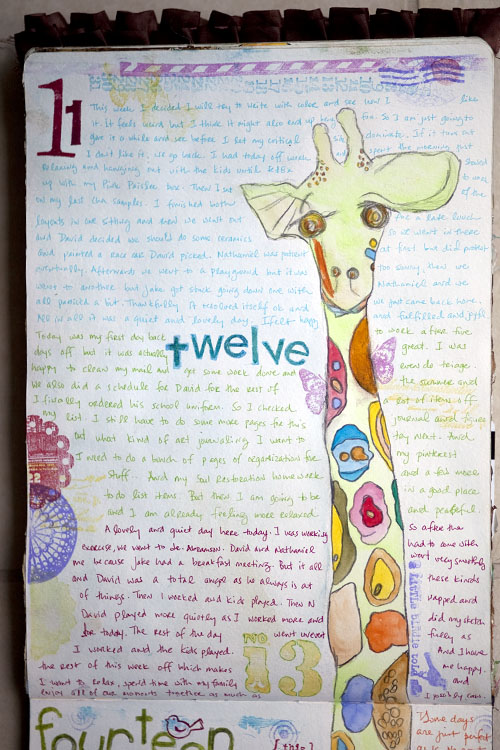 11
This week I decided I will try to write with color and see how I like
it. It feels weird but I think it might also end up being fun. So I am just going to
give it a while and see before I let my critical side dominate. If it turns out
I don't like it, we go back. I had today off work, spent the morning just
relaxing and hanging out with the kids until FedEx showed
up with my Pink Paislee box. Then I sat to one
on my last CHA samples. I finished both of the
layouts in one sitting and then we went out for a late lunch
and David decided we should do some ceramics so we went in there
and painted a race car David picked. Nathaniel was patient at first but did protest
eventually. Afterwards we went to a playground but it was too sunny then we
went to another but Jake got stuck going down one with Nathaniel and we
all panicked a bit. Thankfully it resolved itself ok and we just came back home.
All in all it was a quiet and lovely day. I felt happy and fulfilled and joyful.
twelve
Today was my first day back to work after five
days off but it was actually great. I was
happy to clean my mail and get some work done and even do triage.
We also did a schedule for David for the rest of the summer and
I finally ordered his school uniform. So I checked a lot of items off
my list. I still have to do some more pages for this journal and figure
out what kind of art journaling I want to try next. And
I need to do a bunch of pages of organization for my pinterest
stuff... And my Soul Restoration homework and a few more
to do list items. But then I am going to be in a good place
and I am already feeling more relaxed and peaceful.
A lovely and quiet day here today. I was working so after the
exercise, we went to Dr. Abramson. David and Nathaniel had to come with
me because Jake had a breakfast meeting. But it all went very smoothly
and David was a total angel as he always is at these kinds
of things. Then I worked and kids played. Then N napped and
David played more quietly as I worked more and did my sketch
for today. The rest of the day went uneventfully as
NO 13
I worked and the kids played. And I have
the rest of this week off which makes me happy.
I want to relax, spend time with my family and
enjoy all of our moments together as much as I possibly can.
a little birdie told
fourteen
"Some days
are just perfect